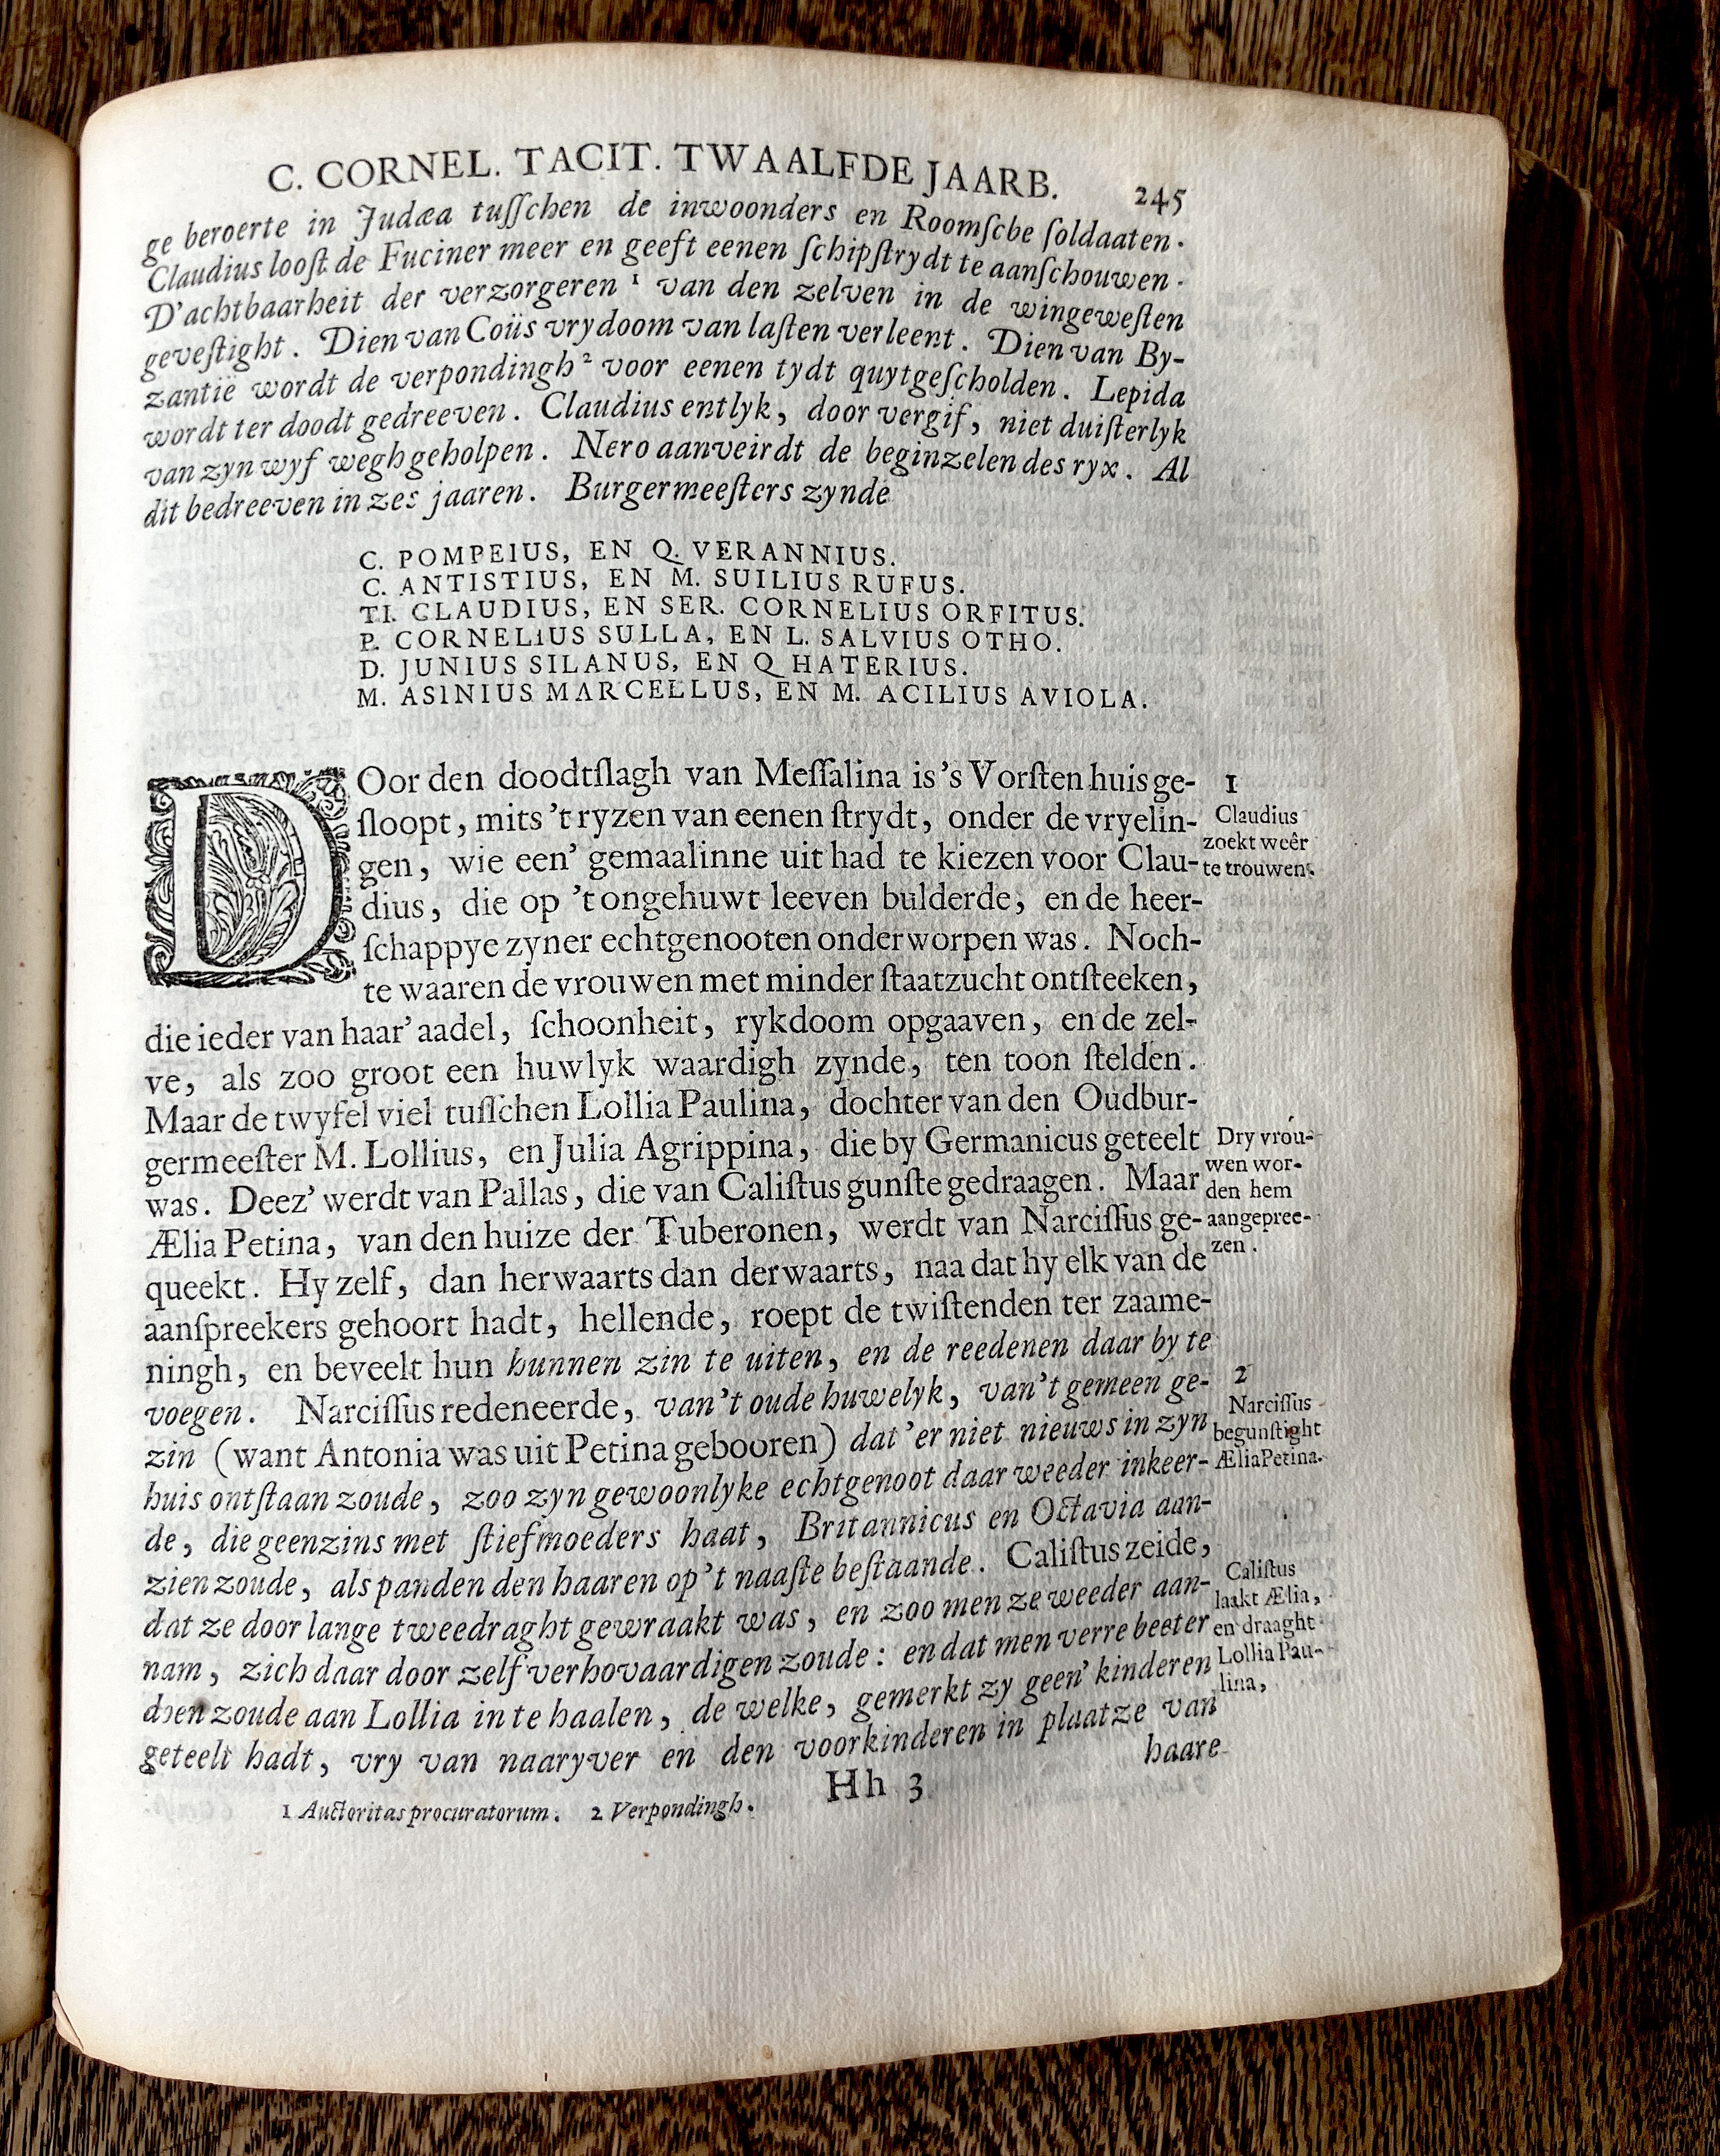 C. CORNEL. TACIT. TWAALFDE JAARB. 245
ge beroerte in Judæa tuſſchen de inwoonders en Roomſche ſoldaaten.
Claudius looſt de Fuciner meer en geeft eenen ſchipſtrydt te aanſchouwen.
D'achtbaarheit der verzorgeren ¹ van den zelven in de wingeweſten
geveſtight. Dien van Coüs vrydoom van laſten verleent. Dien van By-
zantië wordt de verpondingh ² voor eenen tydt quytgeſcholden. Lepida
wordt ter doodt gedreeven. Claudius entlyk, door vergif, niet duiſterlyk
van zyn wyf wegh geholpen. Nero aanveirdt de beginzelen des ryx. Al
dit bedreeven in zes jaaren. Burgermeeſters zynde
C. POMPEIUS, EN Q. VERANNIUS.
C. ANTISTIUS, EN M. SUILIUS RUFUS.
TI. CLAUDIUS, EN SER. CORNELIUS ORFITUS.
P. CORNELIUS SULLA, EN L. SALVIUS OTHO.
D. JUNIUS SILANUS, EN Q HATERIUS.
M. ASINIUS MARCELLUS, EN M. ACILIUS AVIOLA.
DOor den doodtſlagh van Meſſalina is 's Vorſten huis ge-
ſloopt, mits 't ryzen van eenen ſtrydt, onder de vryelin-
gen, wie een' gemaalinne uit had te kiezen voor Clau-
dius, die op 't ongehuwt leeven bulderde, en de heer-
ſchappye zyner echtgenooten onderworpen was. Noch-
te waaren de vrouwen met minder ſtaatzucht ontſteeken,
die ieder van haar' aadel, ſchoonheit, rykdoom opgaaven, en de zel-
ve, als zoo groot een huwlyk waardigh zynde, ten toon ſtelden.
Maar de twyfel viel tuſſchen Lollia Paulina, dochter van den Oudbur-
germeeſter M. Lollius, en Julia Agrippina, die by Germanicus geteelt
was. Deez' werdt van Pallas, die van Caliſtus gunſte gedraagen. Maar
Ælia Petina, van den huize der Tuberonen, werdt van Narciſſus ge-
queekt. Hy zelf, dan herwaarts dan derwaarts, naa dat hy elk van de
aanſpreekers gehoort hadt, hellende, roept de twiſtenden ter zaame-
ningh, en beveelt hun hunnen zin te uiten, en de reedenen daar by te
voegen. Narciſſus redeneerde, van 't oude huwelyk, van 't gemeen ge-
zin (want Antonia was uit Petina gebooren) dat 'er niet nieuws in zyn
huis ontſtaan zoude, zoo zyn gewoonlyke echtgenoot daar weeder inkeer-
de, die geenzins met ſtiefmoeders haat, Britannicus en Octavia aan-
zien zoude, als panden den haaren op 't naaſte beſtaande. Caliſtus zeide,
dat ze door lange tweedraght gewraakt was, en zoo men ze weeder aan-
nam, zich daar door zelf verhovaardigen zoude: en dat men verre beeter
doen zoude aan Lollia in te haalen, de welke, gemerkt zy geen' kinderen
geteelt hadt, vry van naaryver en den voorkinderen in plaatze van
haare
Hh 3
1 Auctoritas procuratorum. 2 Verpondingh.
1
Claudius
zoekt weêr
te trouwen.
Dry vrou-
wen wor-
den hem
aangepree-
zen.
2
Narciſſus
begunſtight
Ælia Petina.
Caliſtus
laakt Ælia,
en draaght
Lollia Pau-
lina,